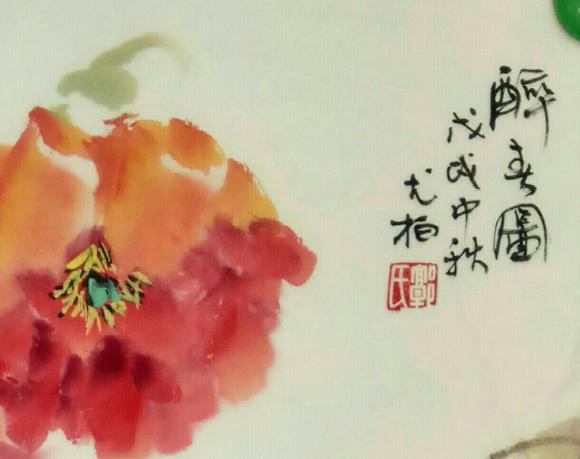 醉春圖
戊戌中秋
尤柏
鄭氏